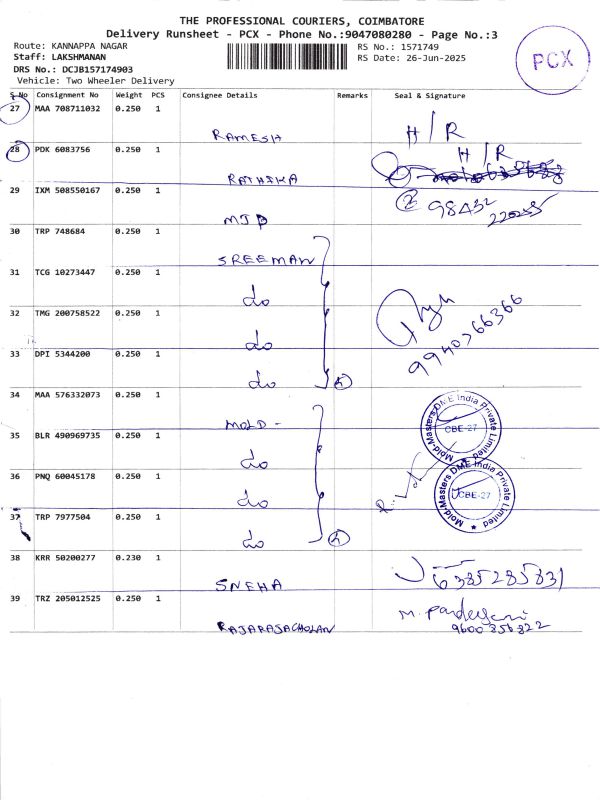 THE PROFESSIONAL COURIERS, COIMBATORE
Delivery Runsheet - PCX - Phone No.:9047080280 - Page No.:3
Route: KANNAPPA NAGAR
RS No.: 1571749
Staff: LAKSHMANAN
RS Date: 26-Jun-2025
DRS No.: DCJB157174903
Vehicle: Two Wheeler Delivery
PCX
S.No Consignment No Weight PCS Consignee Details Remarks Seal & Signature
27 MAA 708711032 0.250 1
RAMESH H/R
28 PDK 6083756 0.250 1
H/R
RATHIKA
29 IXM 508550167 0.250 1
MJD 98432 22025
30 TRP 748684 0.250 1
SREEMAN
31 TCG 10273447 0.250 1
do
32 TMG 200758522 0.250 1
do 9940766366
33 DPI 5344200 0.250 1
do 4
34 MAA 576332073 0.250 1
MOLD -
Mold-Masters DME India Private Limited
CBE-27
35 BLR 490969735 0.250 1
do
36 PNQ 60045178 0.250 1
do
Mold-Masters DME India Private Limited
CBE-27
37 TRP 7977504 0.250 1
do 4
38 KRR 50200277 0.230 1
SNEHA 6385285831
39 TRZ 205012525 0.250 1
RAJARAJACHOLAN
9600356322